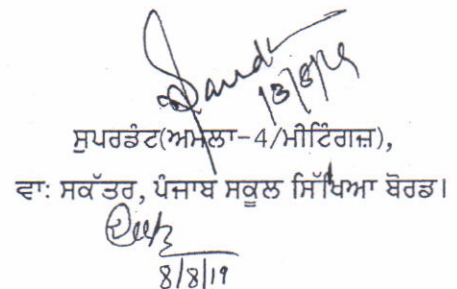 13/8/19
ਸੁਪਰਡੰਟ(ਅਮਲਾ-4/ਮੀਟਿੰਗਜ਼),
ਵਾ: ਸਕੱਤਰ, ਪੰਜਾਬ ਸਕੂਲ ਸਿੱਖਿਆ ਬੋਰਡ।
8/8/19